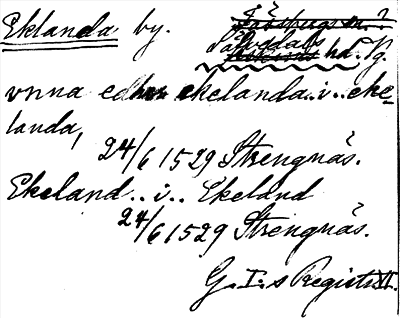 Eklanda by.
Sävedals hd. Vg.
vnna edher ekelanda..i..eke-
landa,
24/6 1529 Strengnäs.
Ekeland..i.. Ekeland
24/6 1529 Strengnäs.
G. I:s Registr. VI.